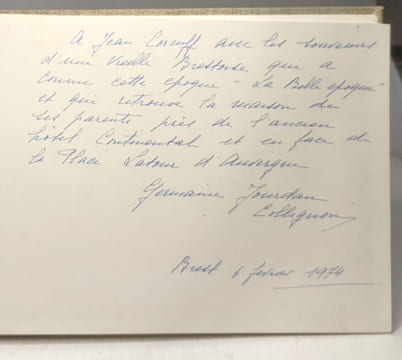 A Jean Corcuff avec les souvenirs
d'une Vieille Brestoise qui a
connue cette epoque "La Belle epoque"
et qui retrouve la maison de
ses parents près de l'ancien
hôtel Continental et en face de
la Place Latour d'Auvergne
Germaine Jourdan
Collignon
Brest 6 fevrier 1974